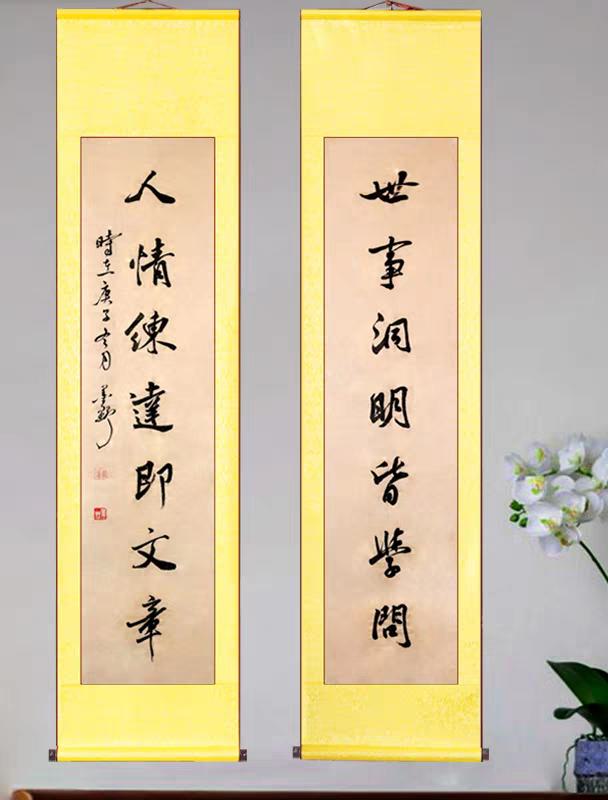 世事洞明皆學問
人情練達即文章
時在庚子冬月